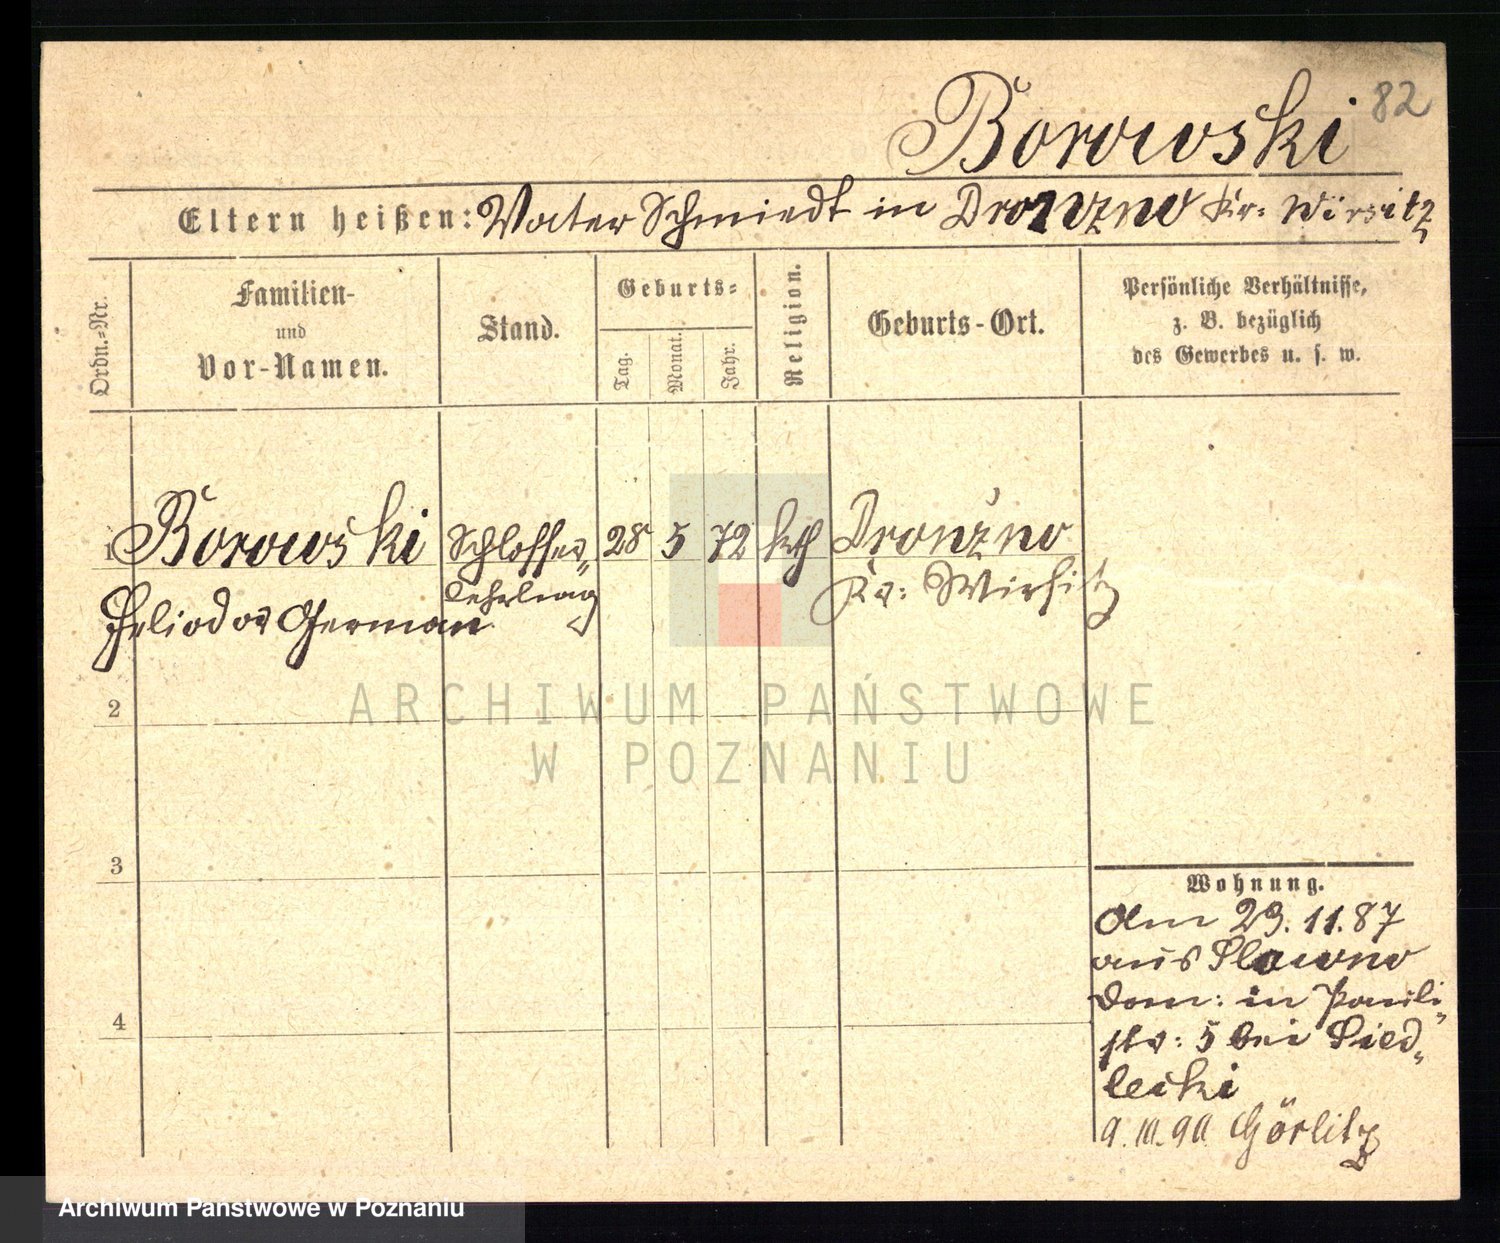 82
Borowski
Eltern heißen: Vater Schmiedt in Dronzno Kr: Wirsitz
Ordn.-Nr.
Familien-
und
Vor-Namen.
Stand.
Geburts-
Tag.
Monat.
Jahr.
Religion.
Geburts-Ort.
Persönliche Verhältnisse,
z. B. bezüglich
des Gewerbes u. s. w.
1 Borowski Schlosser 28 5 72 kth Dronzno
lehrling Kr: Wirsitz
Heliodor German
2
ARCHIWUM PAŃSTWOWE
W POZNANIU
3
Wohnung.
Am 29.11.87
aus Slawno
Dom: in Pauli
4
str: 5 bei Sied
lecki
9.10.90 Görlitz
Archiwum Państwowe w Poznaniu